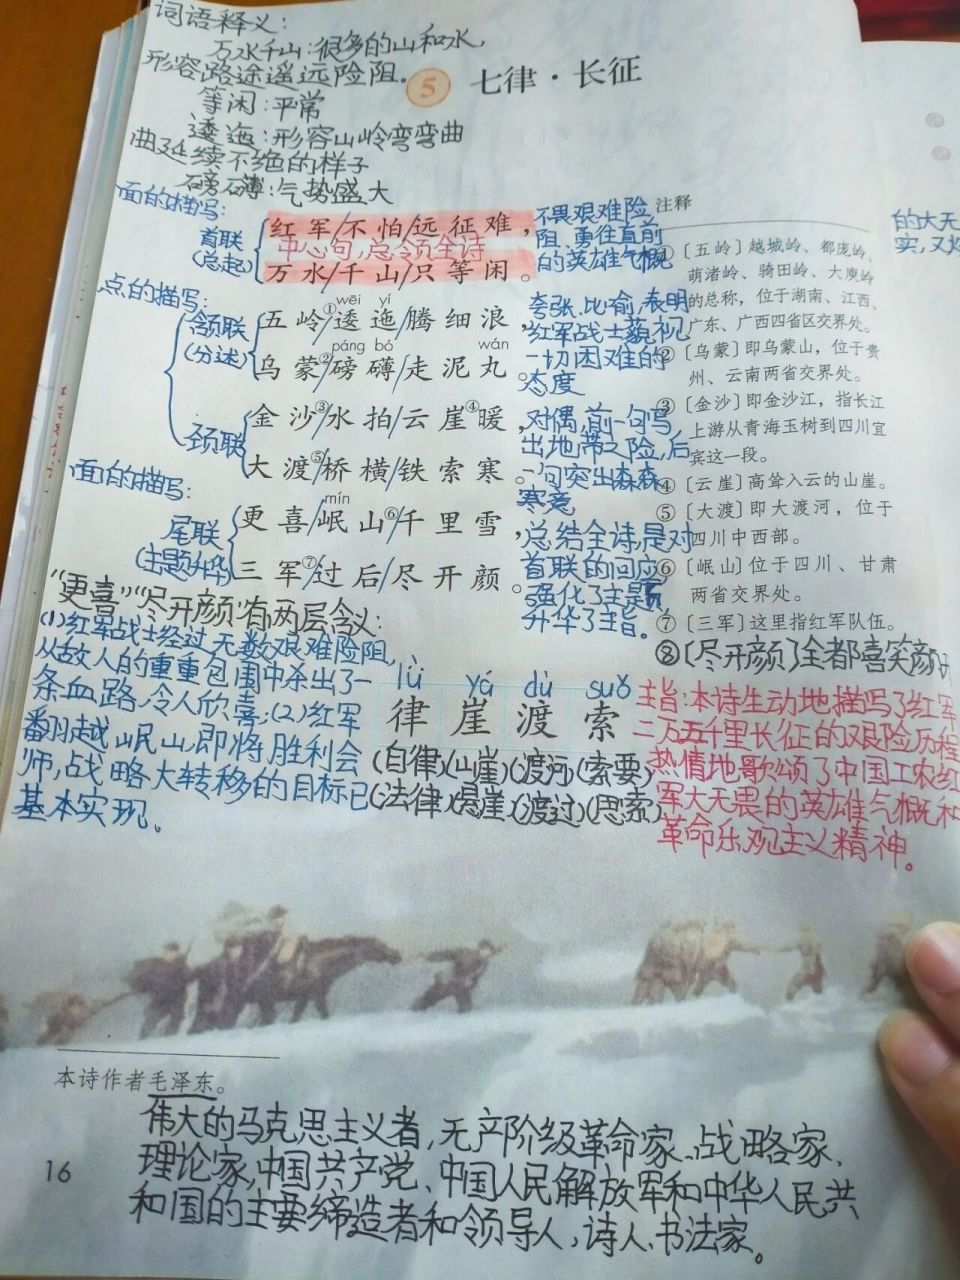 词语释义：
万水千山：很多的山和水，
形容路途遥远险阻。
等闲：平常
逶迤：形容山岭弯弯曲
曲延续不绝的样子
磅礴：气势盛大
5 七律·长征
面的描写：
首联
(总起)
红军/不怕/远征难，
中心句，总领全诗
万水/千山/只等闲。
不畏艰难险
阻、勇往直前
的英雄气概
点的描写：
领联
(分述)
wēi yí
五岭①/逶迤/腾细浪，
páng bó wán
乌蒙②/磅礴/走泥丸。
夸张、比喻，表明
红军战士藐视
一切困难的
态度
颈联
金沙③/水拍/云崖④暖，
大渡⑤/桥横/铁索寒。
对偶，前一句写
出地带之险，后
一句突出森森
寒意
面的描写：
尾联
(主题升华)
mín
更喜/岷山⑥/千里雪，
三军⑦/过后/尽开颜。
总结全诗，是对
首联的回应，
强化了主题，
升华了主旨。
注释
①〔五岭〕越城岭、都庞岭、
萌渚岭、骑田岭、大庾岭
的总称，位于湖南、江西、
广东、广西四省区交界处。
②〔乌蒙〕即乌蒙山，位于贵
州、云南两省交界处。
③〔金沙〕即金沙江，指长江
上游从青海玉树到四川宜
宾这一段。
④〔云崖〕高耸入云的山崖。
⑤〔大渡〕即大渡河，位于
四川中西部。
⑥〔岷山〕位于四川、甘肃
两省交界处。
⑦〔三军〕这里指红军队伍。
⑧〔尽开颜〕全都喜笑颜开
的大无
实，又
"更喜""尽开颜"有两层含义：
(1)红军战士经过无数艰难险阻，
从敌人的重重包围中杀出了一
条血路，令人欣喜；(2)红军
翻越岷山，即将胜利会
师，战略大转移的目标已
基本实现。
lǜ yá dù suǒ
律 崖 渡 索
(自律)(山崖)(渡河)(索要)
(法律)(悬崖)(渡过)(思索)
主旨：本诗生动地描写了红军
二万五千里长征的艰险历程，
热情地歌颂了中国工农红
军大无畏的英雄气概和
革命乐观主义精神。
本诗作者毛泽东。
伟大的马克思主义者，无产阶级革命家、战略家、
理论家，中国共产党、中国人民解放军和中华人民共
和国的主要缔造者和领导人，诗人、书法家。
16